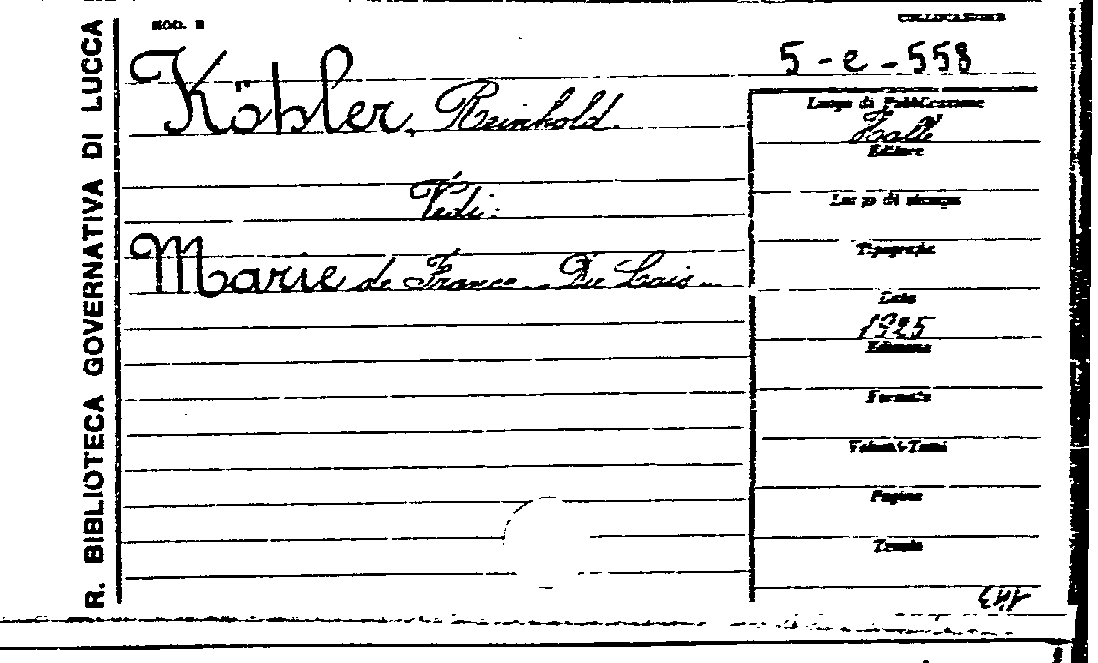 R. BIBLIOTECA GOVERNATIVA DI LUCCA
MOD. B
COLLOCAZIONE
5-e-558
Köhler, Reinhold.
Vedi:
Marie de France - Die Lais -
Luogo di Pubblicazione
Halle
Editore
Luogo di stampa
Tipografia
Data
1925
Edizione
Formato
Volumi-Tomi
Pagine
Tavole